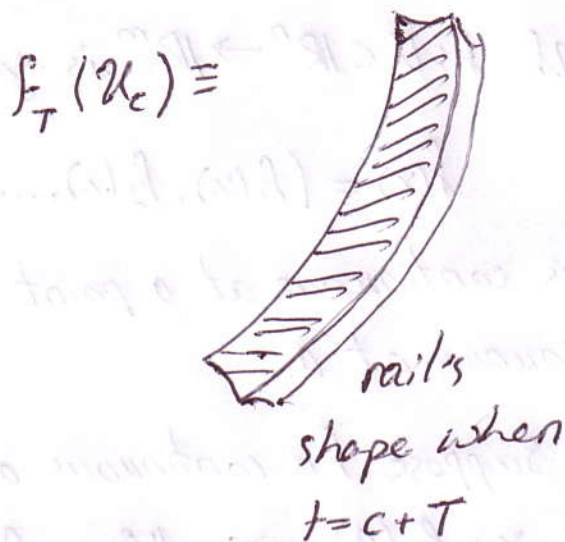 f_T (𝒰_c) ≡
rail's
shape when
t = c + T